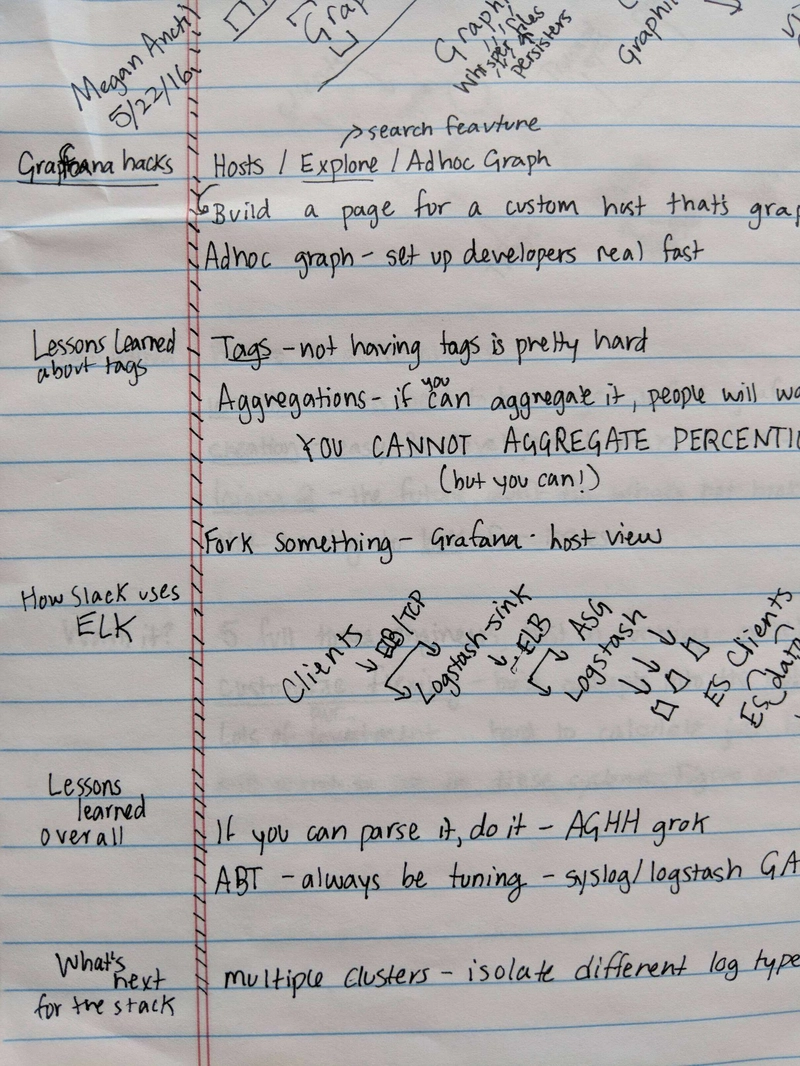 Megan Anctil
5/22/16
Grap
Graphi
Whisper files
persisters
Graphi
> search feavture
Graffana hacks
Hosts / Explore / Adhoc Graph
Build a page for a custom host that's grap
Adhoc graph - set up developers real fast
Lessons learned
about tags
Tags - not having tags is pretty hard
you
Aggregations - if can aggregate it, people will wa
YOU CANNOT AGGREGATE PERCENTI
(but you can!)
Fork something - Grafana · host view
How Slack uses
ELK
Clients
ELB/TCP
Logstash-sink
ELB
ASG
Logstash
ES Clients
ES data
Lessons
learned
overall
If you can parse it, do it - AGHH grok
ABT - always be tuning - syslog/logstash GA
What's
next
for the stack
multiple clusters - isolate different log type